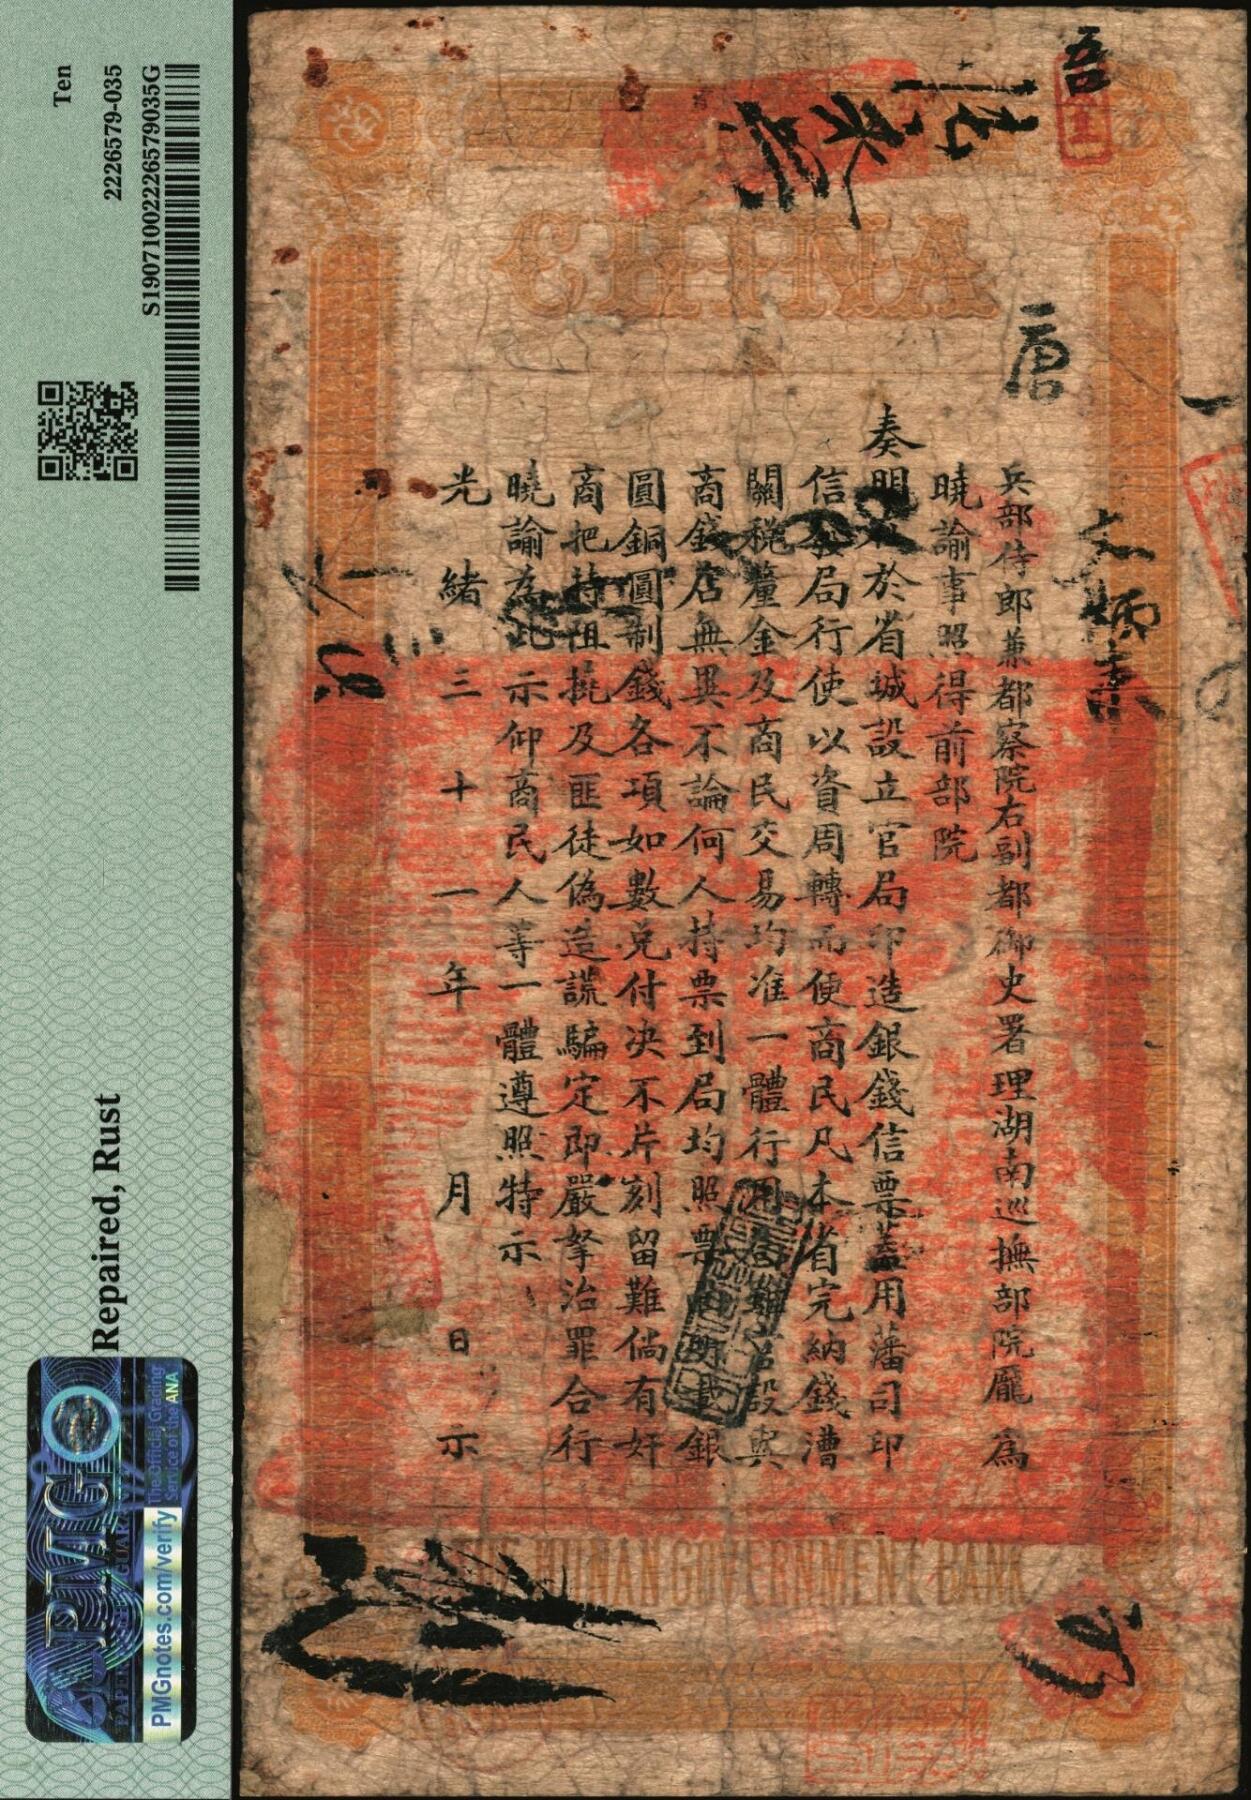 CHINA
兵部侍郎兼都察院右副都御史署理湖南巡撫部院龐 為
曉諭事照得前部院
奏明於省城設立官局印造銀錢信票蓋用藩司印
信發局行使以資周轉而便商民凡本省完納錢漕
關稅釐金及商民交易均准一體行用
商錢店無異不論何人持票到局均照票銀
圓銅圓制錢各項如數兌付決不片刻留難倘有奸
商把持阻撓及匪徒偽造謊騙定即嚴拏治罪合行
曉諭為此示仰商民人等一體遵照特示
光緒三十一年 月 日示
THE HUNAN GOVERNMENT BANK
唐
Ten
2226579-035
S1907100222657903​5G
Repaired, Rust
PMG
The Official Grading Service of the ANA
PMGnotes.com/verify